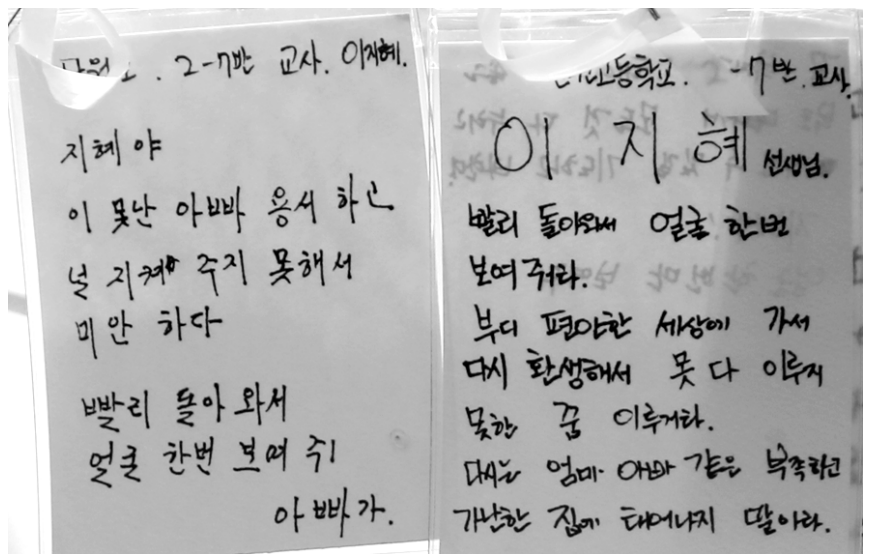 단원고. 2-7반 교사. 이지혜.
지혜야
이 못난 아빠 용서 하고
널 지켜 주지 못해서
미안 하다
빨리 돌아 와서
얼굴 한번 보여 주!
아빠가.
고등학교. -7반. 교사.
이지혜 선생님.
빨리 돌아와서 얼굴 한번
보여 줘라.
부디 편안한 세상에 가서
다시 환생해서 못 다 이루지
못한 꿈 이루거라.
다시는 엄마 아빠 같은 부족하고
가난한 집에 태어나지 딸아라.